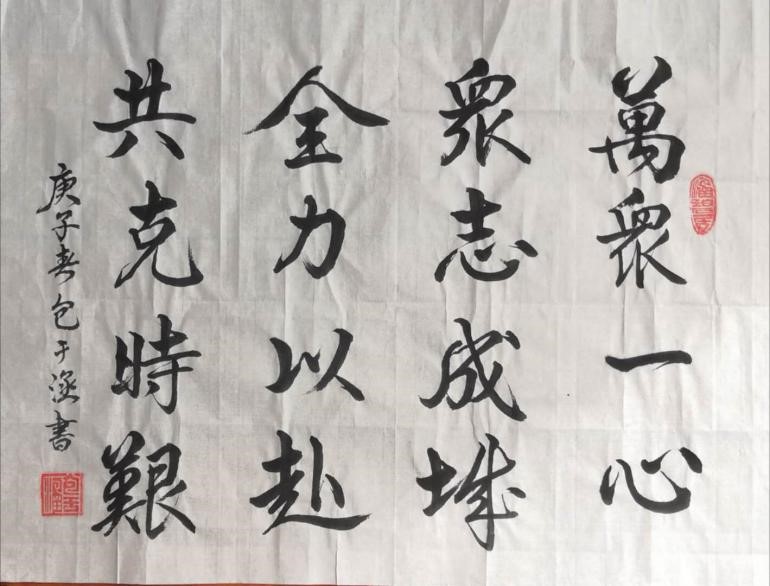 萬衆一心
衆志成城
全力以赴
共克時艱
庚子春包于逕書